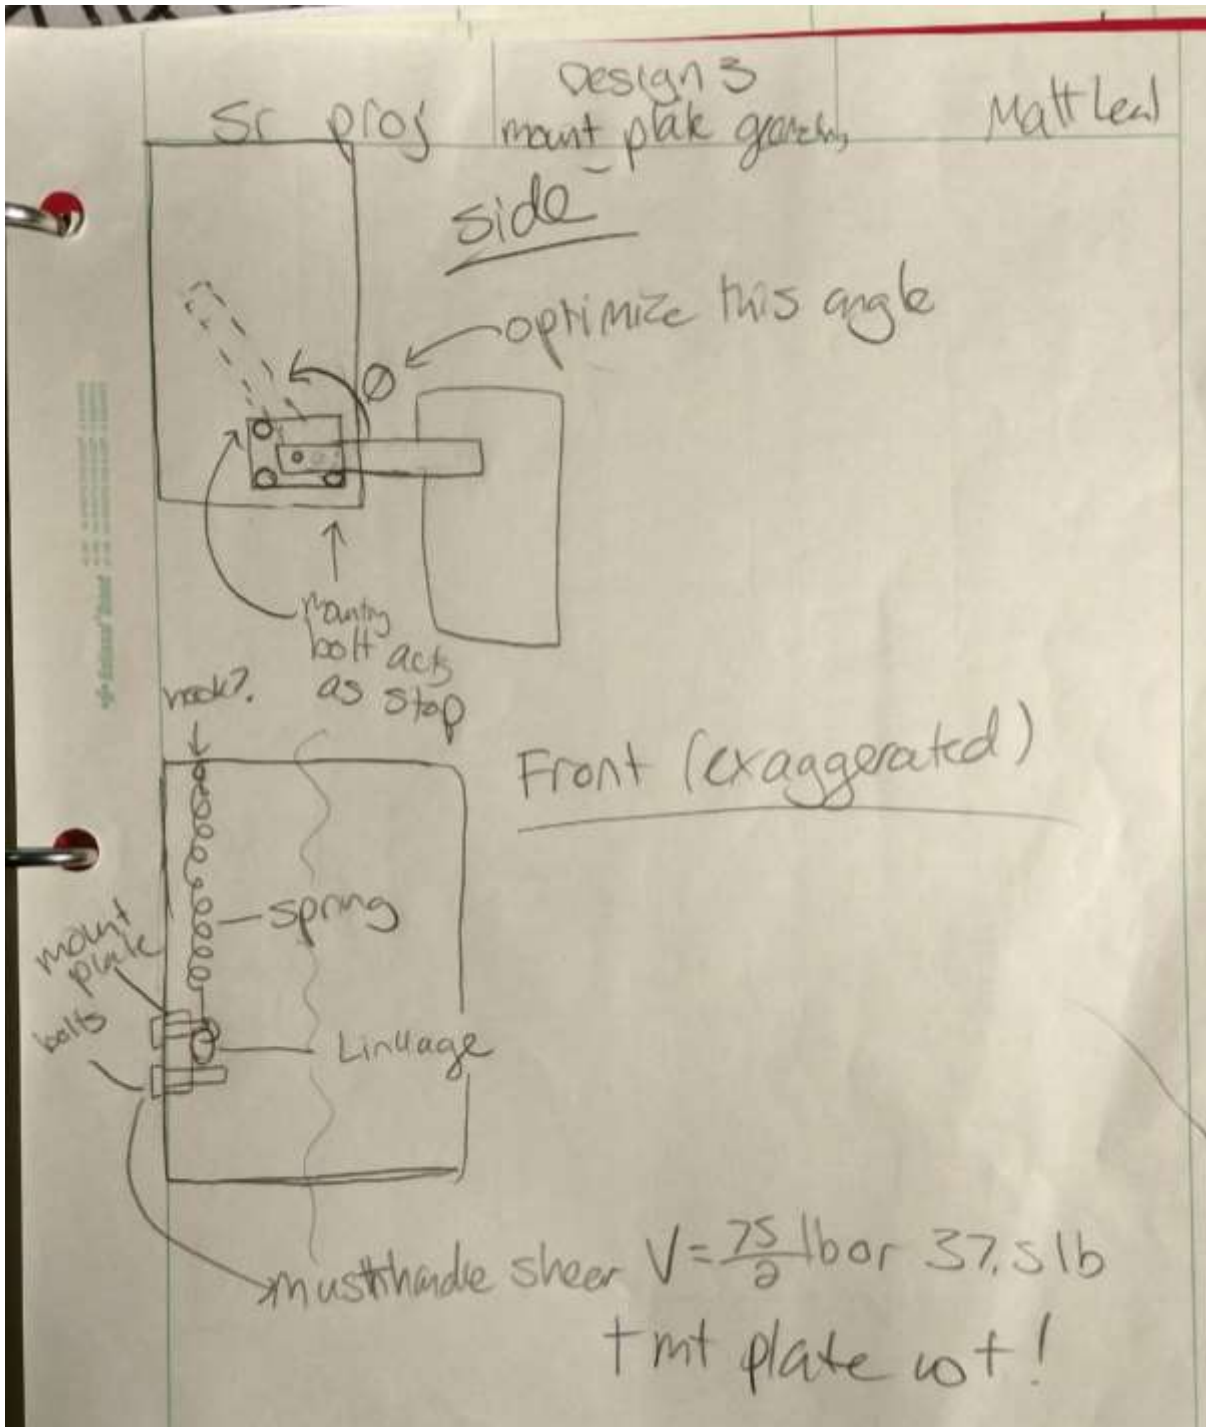 Sr proj
Design 3
mount plate
Matt Leal
side
optimize this angle
Ø
mounting
bolt acts
as stop
hook?
Front (exaggerated)
spring
mount
plate
bolts
Linkage
must handle sheer V = 75/2 lb or 37.5 lb
+ mt plate wt!